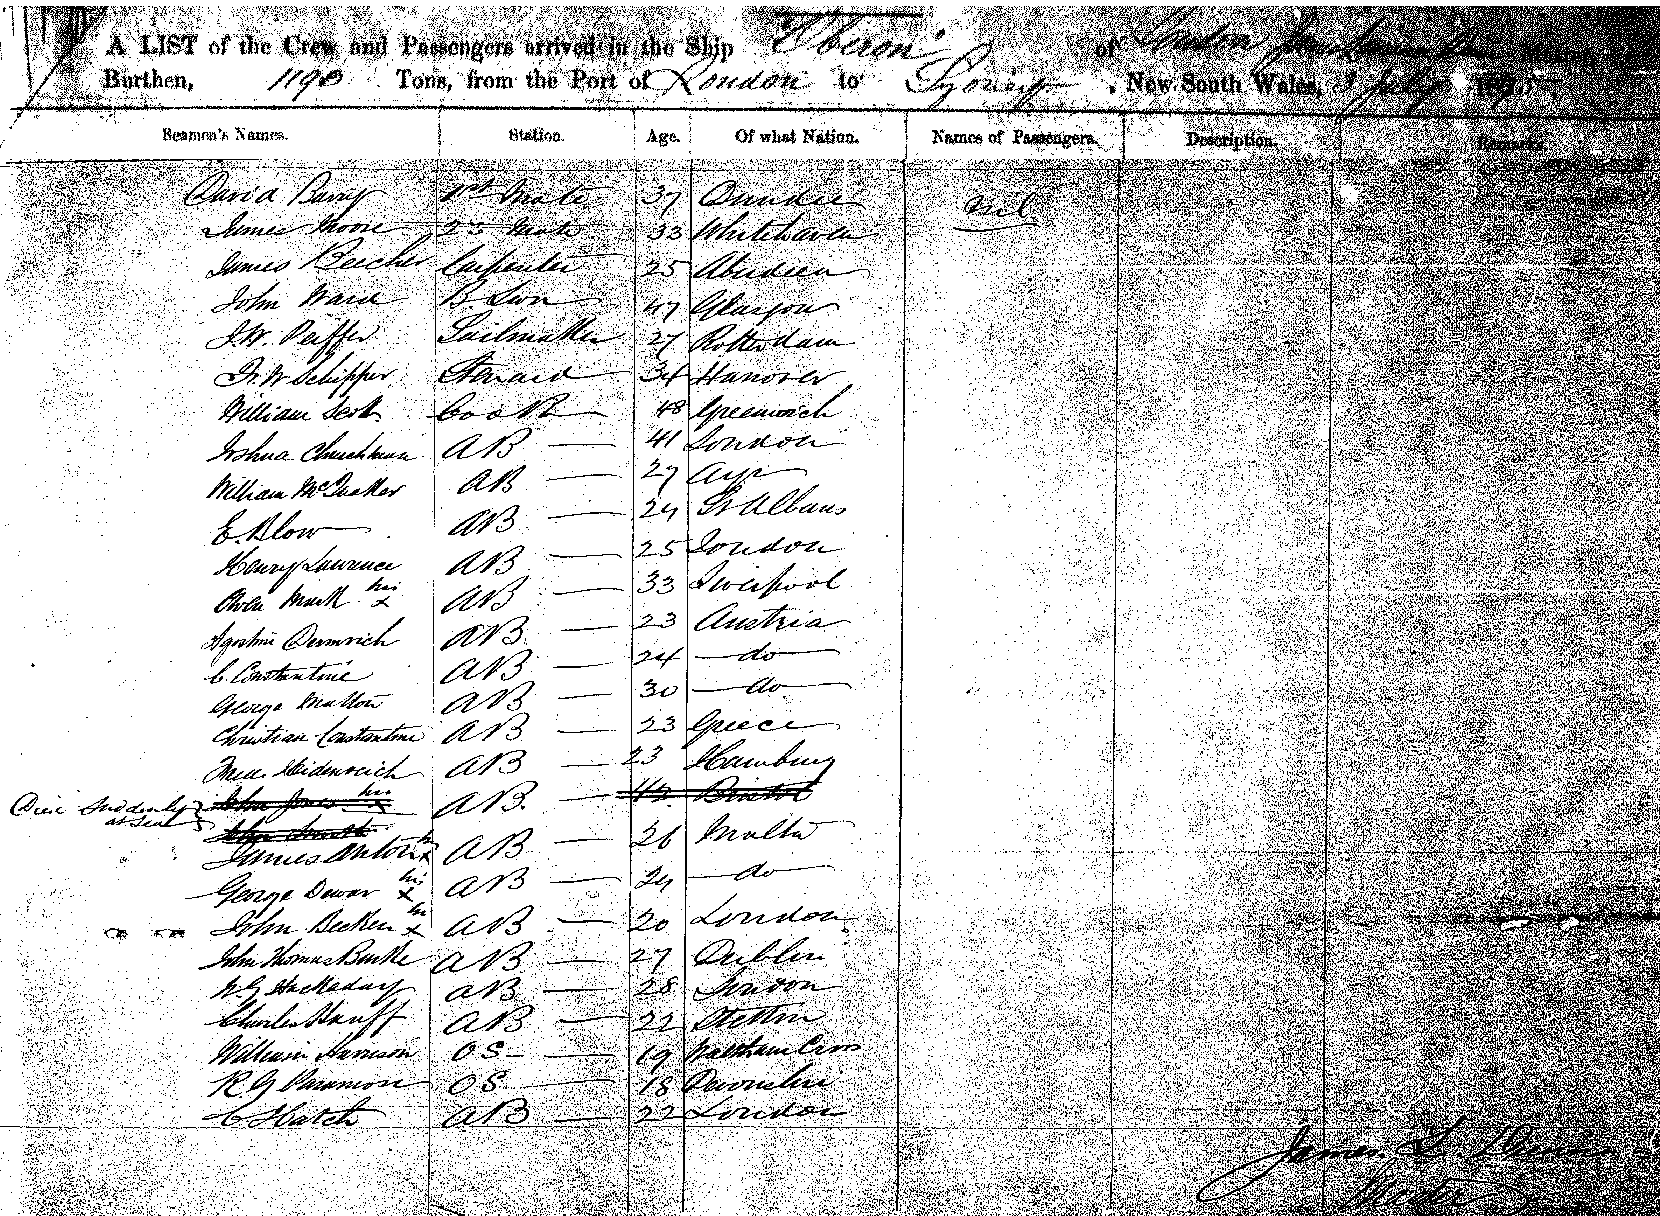 A LIST of the Crew and Passengers arrived in the Ship "Oberon" of London
Burthen, 1190 Tons, from the Port of London to Sydney, New South Wales, July 187
Seamen's Names. Station. Age. Of what Nation. Names of Passengers. Description. Remarks.
David Barry 1st Mate 37 Dundee nil
James Moore 2d Mate 33 Whitehaven
James Beecher Carpenter 25 Aberdeen
John Ward B Swn 47 Glasgow
J.W. Peiffer Sailmaker 27 Rotterdam
Fr. W Schipper Steward 34 Hanover
William Scott Cook 48 Greenwich
Joshua Churchman AB 41 London
William McQuaker AB 27 Ayr
E. Blow AB 24 St Albans
Henry Lawrence AB 25 London
Owen his x AB 33 Liverpool
Agostini AB 23 Austria
C. Constantine AB 24 do
George AB 30 do
Christian Constantine AB 23 Greece
Fred. Heidenreich AB 23 Hamburg
Died suddenly at Sea John Jones his x AB. 42 Bristol
John Smith
James Anton his x AB 26 Malta
George Dewar his x AB 24 do
John Becken his x AB 20 London
John Thomas Burke AB 27 Dublin
W.G. Hackaday AB 28 London
Charles Hauff AB 22 Stettin
William Harrison OS 19 Waltham Cross
R G Paramore OS 18 Devonshire
C Hatch AB 22 London
James
Master